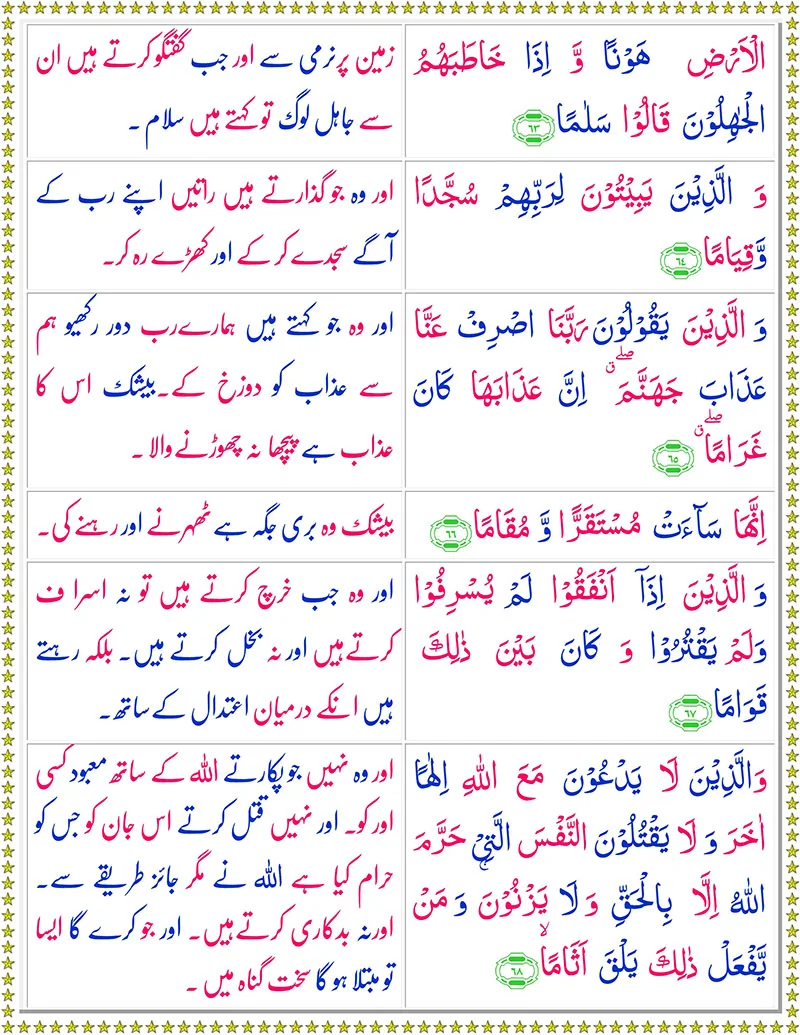 الْاَرْضِ هَوْنًا وَّ اِذَا خَاطَبَهُمُ
الْجٰهِلُوْنَ قَالُوْا سَلٰمًا ﴿٦٣﴾
زمین پر نرمی سے اور جب گفتگو کرتے ہیں ان
سے جاہل لوگ تو کہتے ہیں سلام ۔
وَ الَّذِيْنَ يَبِيْتُوْنَ لِرَبِّهِمْ سُجَّدًا
وَّقِيَامًا ﴿٦٤﴾
اور وہ جو گذارتے ہیں راتیں اپنے رب کے
آگے سجدے کر کے اور کھڑے رہ کر۔
وَ الَّذِيْنَ يَقُوْلُوْنَ رَبَّنَا اصْرِفْ عَنَّا
عَذَابَ جَهَنَّمَ ۖۗ اِنَّ عَذَابَهَا كَانَ
غَرَامًا ۖۗ ﴿٦٥﴾
اور وہ جو کہتے ہیں ہمارے رب دور رکھیو ہم
سے عذاب کو دوزخ کے۔ بیشک اس کا
عذاب ہے پیچھا نہ چھوڑنے والا ۔
اِنَّهَا سَآءَتْ مُسْتَقَرًّا وَّ مُقَامًا ﴿٦٦﴾
بیشک وہ بری جگہ ہے ٹھہرنے اور رہنے کی۔
وَ الَّذِيْنَ اِذَآ اَنْفَقُوْا لَمْ يُسْرِفُوْا
وَلَمْ يَقْتُرُوْا وَ كَانَ بَيْنَ ذٰلِكَ
قَوَامًا ﴿٦٧﴾
اور وہ جب خرچ کرتے ہیں تو نہ اسرا ف
کرتے ہیں اور نہ بخل کرتے ہیں۔ بلکہ رہتے
ہیں انکے درمیان اعتدال کے ساتھ۔
وَالَّذِيْنَ لَا يَدْعُوْنَ مَعَ اللّٰهِ اِلٰهًا
اٰخَرَ وَ لَا يَقْتُلُوْنَ النَّفْسَ الَّتِيْ حَرَّمَ
اللّٰهُ اِلَّا بِالْحَقِّ وَ لَا يَزْنُوْنَ ۚ وَ مَنْ
يَّفْعَلْ ذٰلِكَ يَلْقَ اَثَامًا ۙ ﴿٦٨﴾
اور وہ نہیں جو پکارتے اللہ کے ساتھ معبود کسی
اور کو۔ اور نہیں قتل کرتے اس جان کو جس کو
حرام کیا ہے اللہ نے مگر جائز طریقے سے۔
اورنہ بدکاری کرتے ہیں۔ اور جو کرے گا ایسا
تو مبتلا ہو گا سخت گناہ میں ۔